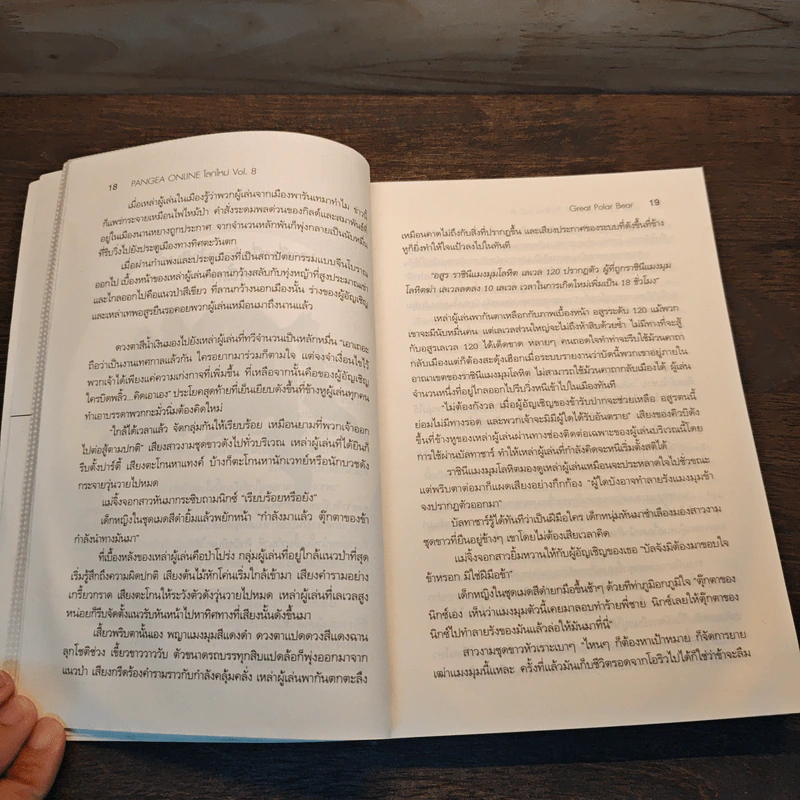 18 PANGEA ONLINE โลกใหม่ Vol. 8
เมื่อเหล่าผู้เล่นในเมืองรู้ว่าพวกผู้เล่นจากเมืองพารันเทมาทำไม ข่าวนี้
ก็แพร่กระจายเหมือนไฟไหม้ป่า คำสั่งระดมพลด่วนของกิลด์และสมาพันธ์ที่
อยู่ในเมืองนานหยางถูกประกาศ จากจำนวนหลักพันก็พุ่งกลายเป็นนับหมื่น
ที่รีบวิ่งไปยังประตูเมืองทางทิศตะวันตก
เมื่อผ่านกำแพงและประตูเมืองที่เป็นสถาปัตยกรรมแบบจีนโบราณ
ออกไป เบื้องหน้าของเหล่าผู้เล่นคือลานกว้างสลับกับทุ่งหญ้าที่สูงประมาณเข่า
และไกลออกไปคือแนวป่าสีเขียว ที่ลานกว้างนอกเมืองนั้น ร่างของผู้อัญเชิญ
และเหล่าเทพอสูรยืนรอคอยพวกผู้เล่นเหมือนมาถึงนานแล้ว
ดวงตาสีน้ำเงินมองไปยังเหล่าผู้เล่นที่ทวีจำนวนเป็นหลักหมื่น "เอาเถอะ
ถือว่าเป็นงานเทศกาลแล้วกัน ใครอยากมาร่วมก็ตามใจ แต่จงจำเงื่อนไขไว้
พวกเจ้าได้เพียงแค่ความเก่งกาจที่เพิ่มขึ้น ที่เหลือจากนั้นคือของผู้อัญเชิญ
ใครบิดพลิ้ว...คิดเอาเอง" ประโยคสุดท้ายที่เย็นเยียบดังขึ้นที่ข้างหูผู้เล่นทุกคน
ทำเอาบรรดาพวกกะมั่วนิ่มต้องคิดใหม่
"ใกล้ได้เวลาแล้ว จัดกลุ่มกันให้เรียบร้อย เหมือนยามที่พวกเจ้าออก
ไปต่อสู้ตามปกติ" เสียงสาวงามชุดขาวดังไปทั่วบริเวณ เหล่าผู้เล่นที่ได้ยินก็
รีบตั้งปาร์ตี้ เสียงตะโกนหาแทงค์ บ้างก็ตะโกนหานักเวทย์หรือนักบวชดัง
กระจายวุ่นวายไปหมด
แม่จิ้งจอกสาวหันมากระซิบถามนิกซ์ "เรียบร้อยหรือยัง"
เด็กหญิงในชุดเมดสีดำยิ้มแล้วพยักหน้า "กำลังมาแล้ว ตุ๊กตาของข้า
กำลังนำทางมันมา"
ที่เบื้องหลังของเหล่าผู้เล่นคือป่าโปร่ง กลุ่มผู้เล่นที่อยู่ใกล้แนวป่าที่สุด
เริ่มรู้สึกถึงความผิดปกติ เสียงต้นไม้หักโค่นเริ่มใกล้เข้ามา เสียงคำรามอย่าง
เกรี้ยวกราด เสียงตะโกนให้ระวังตัวดังวุ่นวายไปหมด เหล่าผู้เล่นที่เลเวลสูง
หน่อยก็รีบจัดตั้งแนวรับหันหน้าไปหาทิศทางที่เสียงนั้นดังขึ้นมา
เสี้ยวพริบตานั้นเอง พญาแมงมุมสีแดงดำ ดวงตาแปดดวงสีแดงฉาน
ลุกโชติช่วง เขี้ยวขาววาววับ ตัวขนาดรถบรรทุกสิบแปดล้อก็พุ่งออกมาจาก
แนวป่า เสียงกรีดร้องคำรามราวกับกำลังคลุ้มคลั่ง เหล่าผู้เล่นพากันตกตะลึง
Great Polar Bear 19
เหมือนคาดไม่ถึงกับสิ่งที่ปรากฏขึ้น และเสียงประกาศของระบบที่ดังขึ้นที่ข้าง
หูก็ยิ่งทำให้ใจแป้วลงไปในทันที
"อสูร ราชินีแมงมุมโลหิต เลเวล 120 ปรากฏตัว ผู้ที่ถูกราชินีแมงมุม
โลหิตฆ่า เลเวลลดลง 10 เลเวล เวลาในการเกิดใหม่เพิ่มเป็น 18 ชั่วโมง"
เหล่าผู้เล่นพากันตาเหลือกกับภาพเบื้องหน้า อสูรระดับ 120 แม้พวก
เขาจะมีนับหมื่นคน แต่เลเวลส่วนใหญ่จะไม่ถึงห้าสิบด้วยซ้ำ ไม่มีทางที่จะสู้
กับอสูรเลเวล 120 ได้เด็ดขาด หลายๆ คนถอดใจทำท่าจะรีบใช้ม้วนคาถา
กลับเมืองแต่ก็ต้องสะดุ้งเฮือกเมื่อระบบรายงานว่าบัดนี้พวกเขาอยู่ภายใน
อาณาเขตของราชินีแมงมุมโลหิต ไม่สามารถใช้ม้วนคาถากลับเมืองได้ ผู้เล่น
จำนวนหนึ่งที่อยู่ไกลออกไปรีบวิ่งหนีเข้าไปในเมืองทันที
"ไม่ต้องกังวล เมื่อผู้อัญเชิญของข้ารับปากจะช่วยเหลือ อสูรตนนี้
ย่อมไม่มีทางรอด และพวกเจ้าจะมีมีผู้ใดได้รับอันตราย" เสียงของคิวบิดัง
ขึ้นที่ข้างหูของเหล่าผู้เล่นผ่านทางช่องติดต่อเฉพาะของผู้เล่นบริเวณนี้โดย
การใช้ผ่านบัลทาซาร์ ทำให้เหล่าผู้เล่นที่กำลังคิดจะหนีเริ่มตั้งสติได้
ราชินีแมงมุมโลหิตมองดูเหล่าผู้เล่นเหมือนจะประหลาดใจไปชั่วขณะ
แต่พริบตาต่อมาก็แผดเสียงอย่างกึกก้อง "ผู้ใดบังอาจทำลายรังแมงมุมข้า
จงปรากฏตัวออกมา"
บัลทาซาร์รู้ได้ทันทีว่าเป็นฝีมือใคร เด็กหนุ่มหันมาชำเลืองมองสาวงาม
ชุดขาวที่ยืนอยู่ข้างๆ เขาโดยไม่ต้องเสียเวลาคิด
แม่จิ้งจอกสาวยิ้มหวานให้กับผู้อัญเชิญของเธอ "บัลจังมิต้องมาขอบใจ
ข้าหรอก มิใช่ฝีมือข้า"
เด็กหญิงในชุดเมดสีดำยกมือขึ้นช้าๆ ด้วยทีท่าภูมิอกภูมิใจ "ตุ๊กตาของ
นิกซ์เอง เห็นว่าแมงมุมตัวนี้เคยมาลอบทำร้ายพี่ชาย นิกซ์เลยให้ตุ๊กตาของ
นิกซ์ไปทำลายรังของมันแล้วล่อให้มันมาที่นี่"
สาวงามชุดขาวหัวเราะเบาๆ "ไหนๆ ก็ต้องหาเป้าหมาย ก็จัดการยาย
เฒ่าแมงมุมนี้แหละ ครั้งที่แล้วมันเก็บชีวิตรอดจากโอริวไปได้ก็ใช่ว่าข้าจะลืม